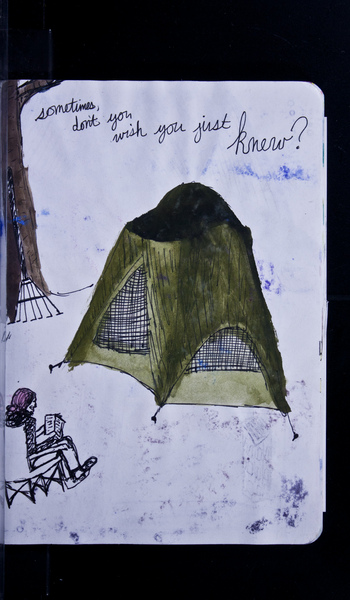 sometimes,
don't you
wish you just
knew?